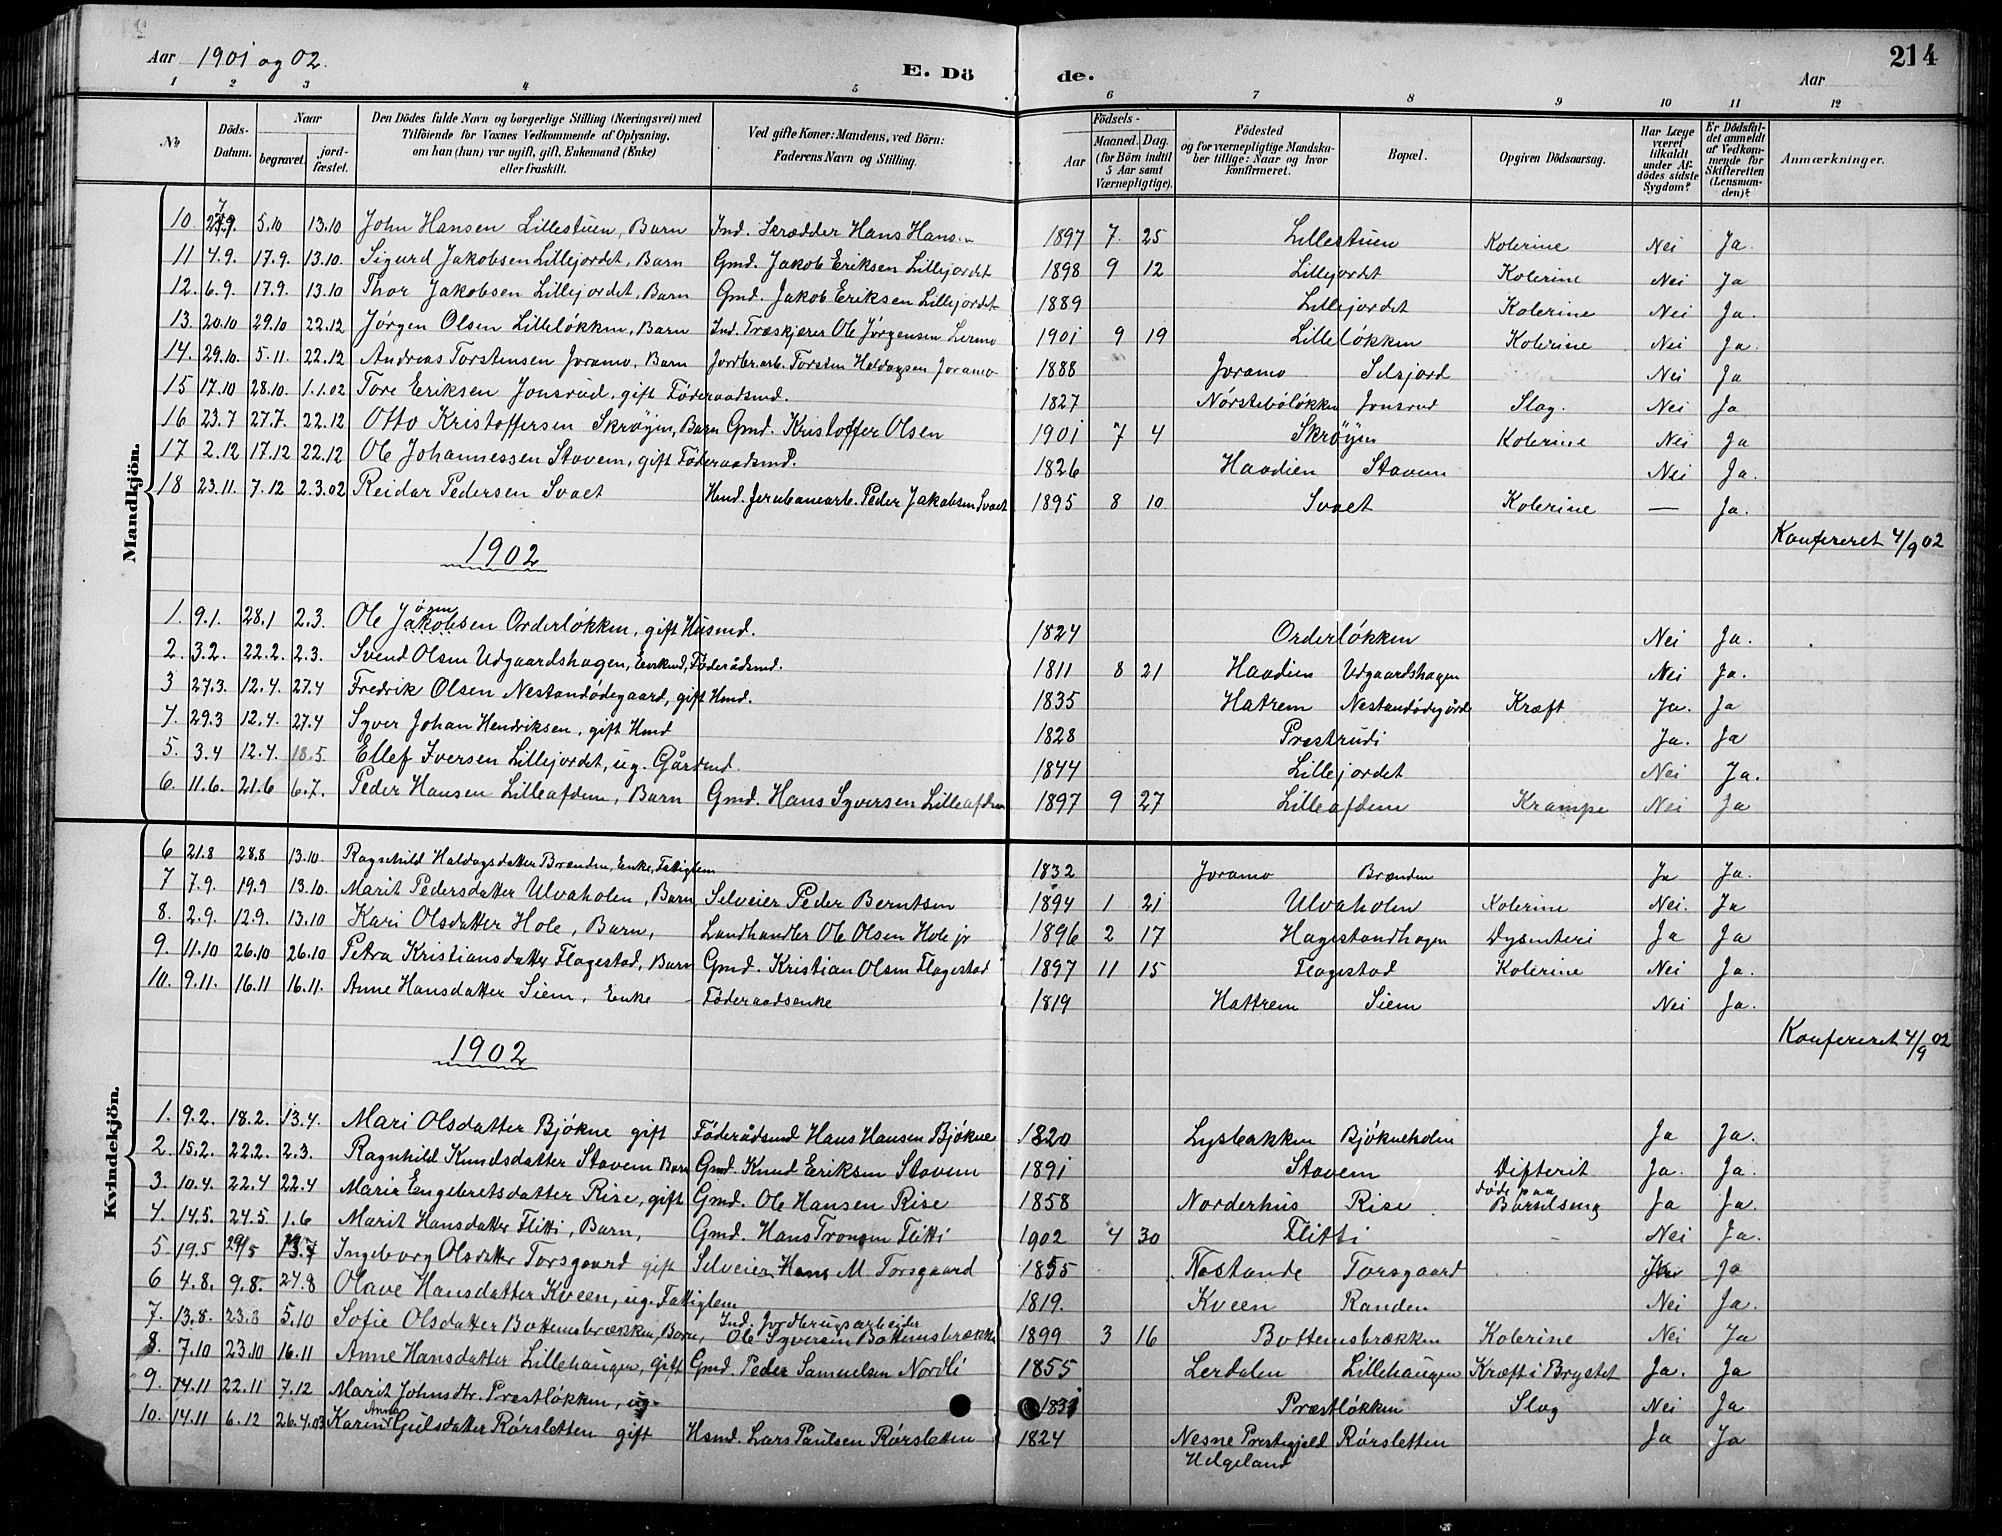 Aar 1901 og 02. E. Dö de. Aar 214
1 2 3 4 5 6 7 8 9 10 11 12
№ Döds-Datum. Naar begravet. jordfæstet. Den Dödes fulde Navn og borgerlige Stilling (Næringsvei) med Tilföiende for Voxnes Vedkommende af Oplysning, om han (hun) var ugift, gift, Enkemand (Enke) eller fraskilt. Ved gifte Koner: Mandens, ved Börn: Faderens Navn og Stilling. Födsels- Aar Maaned. Dag. (for Börn indtil 5 Aar samt Værnepligtige). Födested og for værnepligtige Mandskaber tillige: Naar og hvor konfirmeret. Bopæl. Opgiven Dödsaarsag. Har Læge været tilkaldt under Afdödes sidste Sygdom? Er Dödsfaldet anmeldt af Vedkommende for Skifteretten (Lensmanden)? Anmærkninger.
Mandkjön.
10. 27.9. 5.10 13.10 John Hansen Lillestuen, Barn Ind. Skrædder Hans Hansen 1897 7. 25 Lillestuen Kolerine Nei Ja.
11 4.9. 17.9. 13.10. Sigurd Jakobsen Lillejordet, Barn Gmd. Jakob Eriksen Lillejordet 1898 9 12 Lillejordet Kolerine Nei Ja
12. 6.9. 17.9. 13.10 Thor Jakobsen Lillejordet, Barn Gmd. Jakob Eriksen Lillejordet 1889 Lillejordet Kolerine Nei Ja.
13. 20.10 29.10 22.12 Jørgen Olsen Lilleløkken, Barn Ind. Træskjærer Ole Jørgensen Lermo 1901 9 19 Lilleløkken Kolerine Nei Ja.
14. 29.10. 5.11. 22.12 Andreas Torstensen Joramo, Barn Jordbr.arb. Torsten Haldogsen Joramo 1888 Joramo Selsjord Nei Ja
15 17.10 28.10. 1.1.02 Tore Eriksen Jonsrud, gift Føderaadsmd. 1827 Nørstebøløkken Jonsrud Slag. Nei Ja
16 23.7 27.7. 22.12 Otto Kristoffersen Skrøyen, Barn Gmd. Kristoffer Olsen 1901 7 4 Skrøyen Kolerine Nei Ja
17 2.12 17.12 22.12 Ole Johannessen Stavem, gift Føderaadsmd. 1826 Haadien Stavem Nei Ja.
18 23.11. 7.12 2.3.02 Reidar Pedersen Svaet Hmd. Jernbanearb. Peder Jakobsen Svaet 1895 8 10 Svaet Kolerine — Ja.
Konfereret 4/9 02
1902
1. 9.1. 28.1 2.3. Ole Jakobsen Orderløkken, gift Husmd. 1824 Orderløkken Nei Ja.
2. 3.2. 22.2. 2.3. Svend Olsen Udgaardshagen, Enkmd, Føderådsmd. 1811 8 21 Haadien Udgaardshagen Nei Ja.
3 27.3. 12.4. 27.4 Fredrik Olsen Nestandødegaard, gift Hmd. 1835 Hatrem Nestandødegårde Kræft Ja. Ja
4. 29.3 12.4. 27.4 Syver Johan Hendriksen, gift Hmd 1828 Prestrudi Ja. Ja
5. 3.4 12.4. 18.5. Ellef Iversen Lillejordet, ug. Gårdmd. 1844 Lillejordet Nei Ja.
6. 11.6. 21.6 6.7. Peder Hansen Lilleafdem, Barn Gmd. Hans Syversen Lilleafdem 1897 9 27 Lilleafdem Krampe Nei Ja
Kvindekjön.
6 21.8 28.8 13.10. Ragnhild Haldogsdatter Brænden, Enke, Fattiglem 1832 Joramo Brænden Ja Ja.
7 7.9. 19.9 13.10. Marit Pedersdatter Ulvaholen, Barn, Selveier Peder Berntsen 1894 1 21 Ulvaholen Kolerine Nei. Ja
8. 2.9. 12.9. 13.10 Kari Olsdatter Hole, Barn, Landhandler Ole Olsen Hole jr 1896 2 17 Hagestandhagen Dysenteri Ja Ja
9. 11.10 26.10 26.10 Petra Kristiansdatter Flagestad, Barn Gmd. Kristian Olsen Flagestad 1897 11 15 Flagestad Kolerine Nei Ja.
10. 9.11. 16.11 16.11. Anne Hansdatter Siem, Enke – Føderaadsenke 1819 Hattrem Siem Nei Ja.
Konfereret 4/9 02
1902
1. 9.2. 18.2. 13.4. Mari Olsdatter Bjøkne gift Føderådsmd Hans Hansen Bjøkne 1820 Lysbakken Bjøkneholen Ja Ja.
2. 15.2. 22.2. 2.3. Ragnhild Knudsdatter Stavem Barn Gmd. Knud Eriksen Stavem 1891 Stavem Difterit Ja. Ja.
3. 10.4. 22.4 22.4 Marie Engebretsdatter Rise, gift Gmd. Ole Hansen Rise 1858 Norderhus Rise døde paa Barselseng Ja Ja.
4. 14.5. 24.5. 1.6 Marit Hansdatter Flitti, Barn, Gmd. Hans Tronsen Flitti 1902 4 30 Flitti – Nei Ja.
5 19.5 29/5 13.7 Ingeborg Olsdatter Torsgaard gift Selveier Hans M. Torsgaard 1855 Nostande Torsgaard Ja
6 4.8. 9.8. 24.8 Olave Hansdatter Kveen, ug. Fattiglem 1819. Kveen Randen Nei Ja.
7. 13.8. 23.8 5.10 Sofie Olsdatter Bottemsbrækken, Barn, Ind. Jordbrugsarbeider Ole Syversen Bottemsbrækken 1899 3 16 Bottemsbrækken Kolerine Nei Ja
8. 7.10 23.10 16.11 Anne Hansdatter Lillehaugen, gift Gmd. Peder Samuelsen Nordli 1855 Lerdalen Lillehaugen Kræft i Brystet Ja. Ja
9. 14.11 22.11 7.12 Marit Johnsdtr. Prestløkken, ug. 1831 Præstløkken Slag Nei Ja
10. 14.11 6.12 26.4.03 Karen Anna Gulsdatter Rørsletten gift Hsmd. Lars Paulsen Rørsletten 1824 Nesne Prestegjeld Helgeland Rørsletten Ja Ja